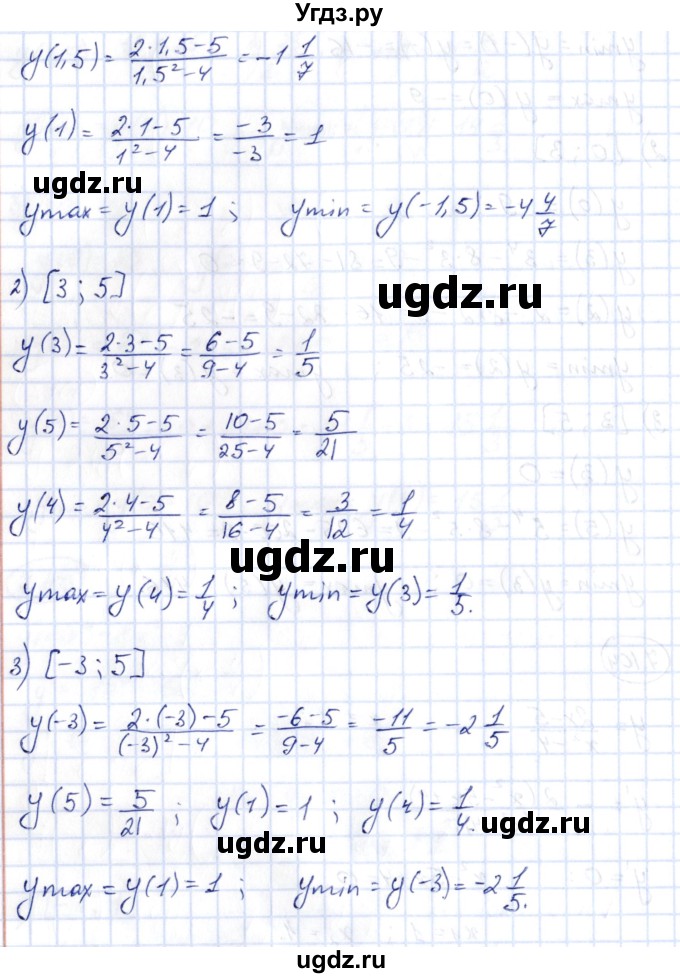 Угдз.ру
y(1,5) = (2·1,5−5)/(1,5²−4) = −1 1/7
y(1) = (2·1−5)/(1²−4) = −3/−3 = 1
ugdz.ru
ymax = y(1) = 1 ; ymin = y(−1,5) = −4 4/7
2) [3 ; 5]
ugdz.ru
y(3) = (2·3−5)/(3²−4) = (6−5)/(9−4) = 1/5
y(5) = (2·5−5)/(5²−4) = (10−5)/(25−4) = 5/21
y(4) = (2·4−5)/(4²−4) = (8−5)/(16−4) = 3/12 = 1/4
ugdz.ru
ymax = y(4) = 1/4 ; ymin = y(3) = 1/5.
3) [−3 ; 5]
y(−3) = (2·(−3)−5)/((−3)²−4) = (−6−5)/(9−4) = −11/5 = −2 1/5
ugdz.ru
y(5) = 5/21 ; y(1) = 1 ; y(4) = 1/4.
ugdz.ru
ymax = y(1) = 1 ; ymin = y(−3) = −2 1/5.
ugdz.ru